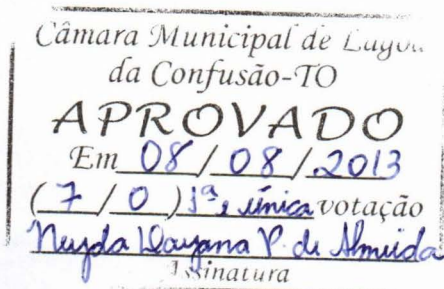 Câmara Municipal de Lagoa
da Confusão-TO
APROVADO
Em 08 / 08 / 2013
( 7 / 0 ) 1ª, única votação
Dayana P. de Almeida
Assinatura